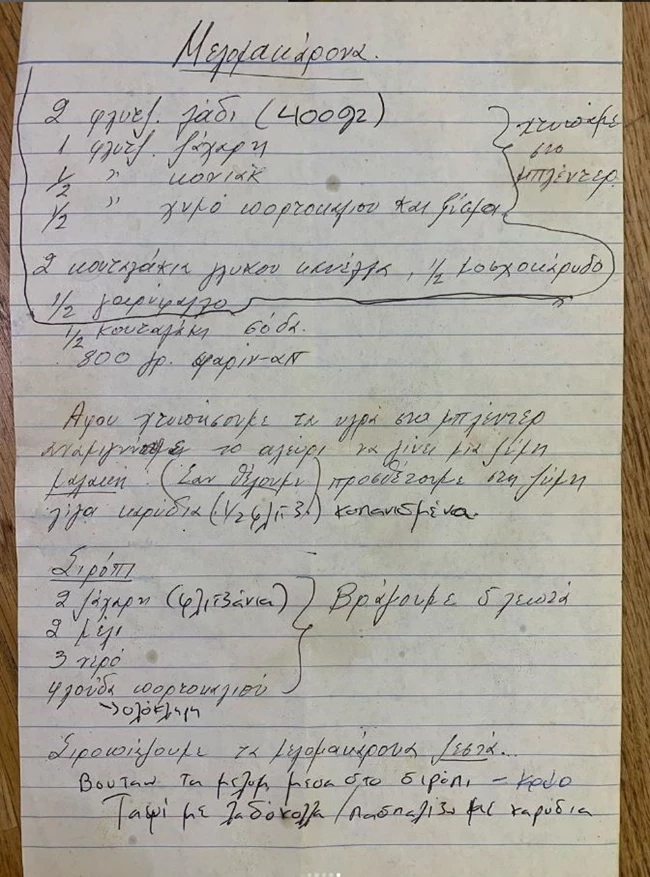 Μελομακάρονα.
2 φλυτζ. λάδι (400 γρ)
1 φλυτζ. ζάχαρη
1/2 " κονιάκ
1/2 " χυμό πορτοκαλιου και ξύσμα
χτυπάμε
στο
μπλέντερ.
2 κουταλάκια γλυκου κανέλλα, 1/2 μοσχοκάρυδο
1/2 γαρύφαλλο
1/2 κουταλάκι σόδα.
800 γρ. φαρίν-απ
Αφου χτυπήσουμε τα υγρά στο μπλέντερ
αναμιγνύουμε το αλεύρι να γίνει μια ζύμη
μαλακη. (Σαν θέλουμε) προσθέτουμε στη ζύμη
λίγα καρύδια (1/2 φλιτζ.) κοπανισμένα.
Σιρόπι
2 ζάχαρη (φλιτζάνια)
2 μέλι
3 νερό
φλούδα πορτοκαλιού
→ ολόκληρη
Βράζουμε 5 λεπτά
Σιροπιάζουμε τα μελομακάρονα ζεστά...
Βουταω τα μελομ μέσα στο σιρόπι - κρύο
Ταψί με λαδόκολλα / πασπαλίζω με καρύδια